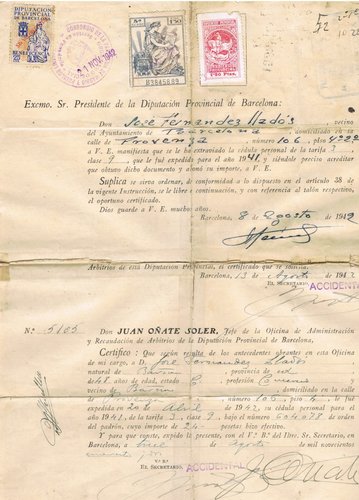 DIPUTACION
PROVINCIAL
DE BARCELONA
NOV. 1942
1'50
B3845889
1'50 Ptas.
Excmo. Sr. Presidente de la Diputación Provincial de Barcelona:
Don José Fernandez Lladós, vecino
del Ayuntamiento de Barcelona, domiciliado en la
calle de Provenza número 106, piso 4º 2ª
a V. E. manifiesta que se le ha extraviado la cédula personal de la tarifa 3,
clase 9, que le fué expedida para el año 1941, y siéndole preciso acreditar
que obtuvo dicho documento y abonó su importe, a V. E.
Suplica se sirva ordenar, de conformidad a lo dispuesto en el artículo 38 de
la vigente Instrucción, se le libre a continuación, y con referencia al talón respectivo,
el oportuno certificado.
Dios guarde a V. E. muchos años.
Barcelona, 8 de agosto de 1942
Arbitrios de esta Diputación Provincial, el certificado que se solicita.
Barcelona, 13 de Agosto de 1942
EL SECRETARIO, ACCIDENTAL
N.º 5165
Don JUAN OÑATE SOLER, Jefe de la Oficina de Administración
y Recaudación de Arbitrios de la Diputación Provincial de Barcelona.
Certifico: Que según resulta de los antecedentes obrantes en esta Oficina
de mi cargo, a D. José Fernandez Lladó
natural de Barna, provincia de
de 48 años de edad, estado C, profesión
vecino de Barna y domiciliado en la calle
número 106, piso 4, le fué
expedida en 20 de Abril de 1942, su cédula personal para el
año 1941, de la tarifa 3, clase 9, bajo el número de orden
del padrón, cuyo importe de pesetas hizo efectivo.
Y para que conste, expido la presente, con el V.º B.º del Iltre. Sr. Secretario, en
Barcelona, a trece de agosto de mil novecientos
cuarenta y dos
V.º B.º
EL SECRETARIO, ACCIDENTAL